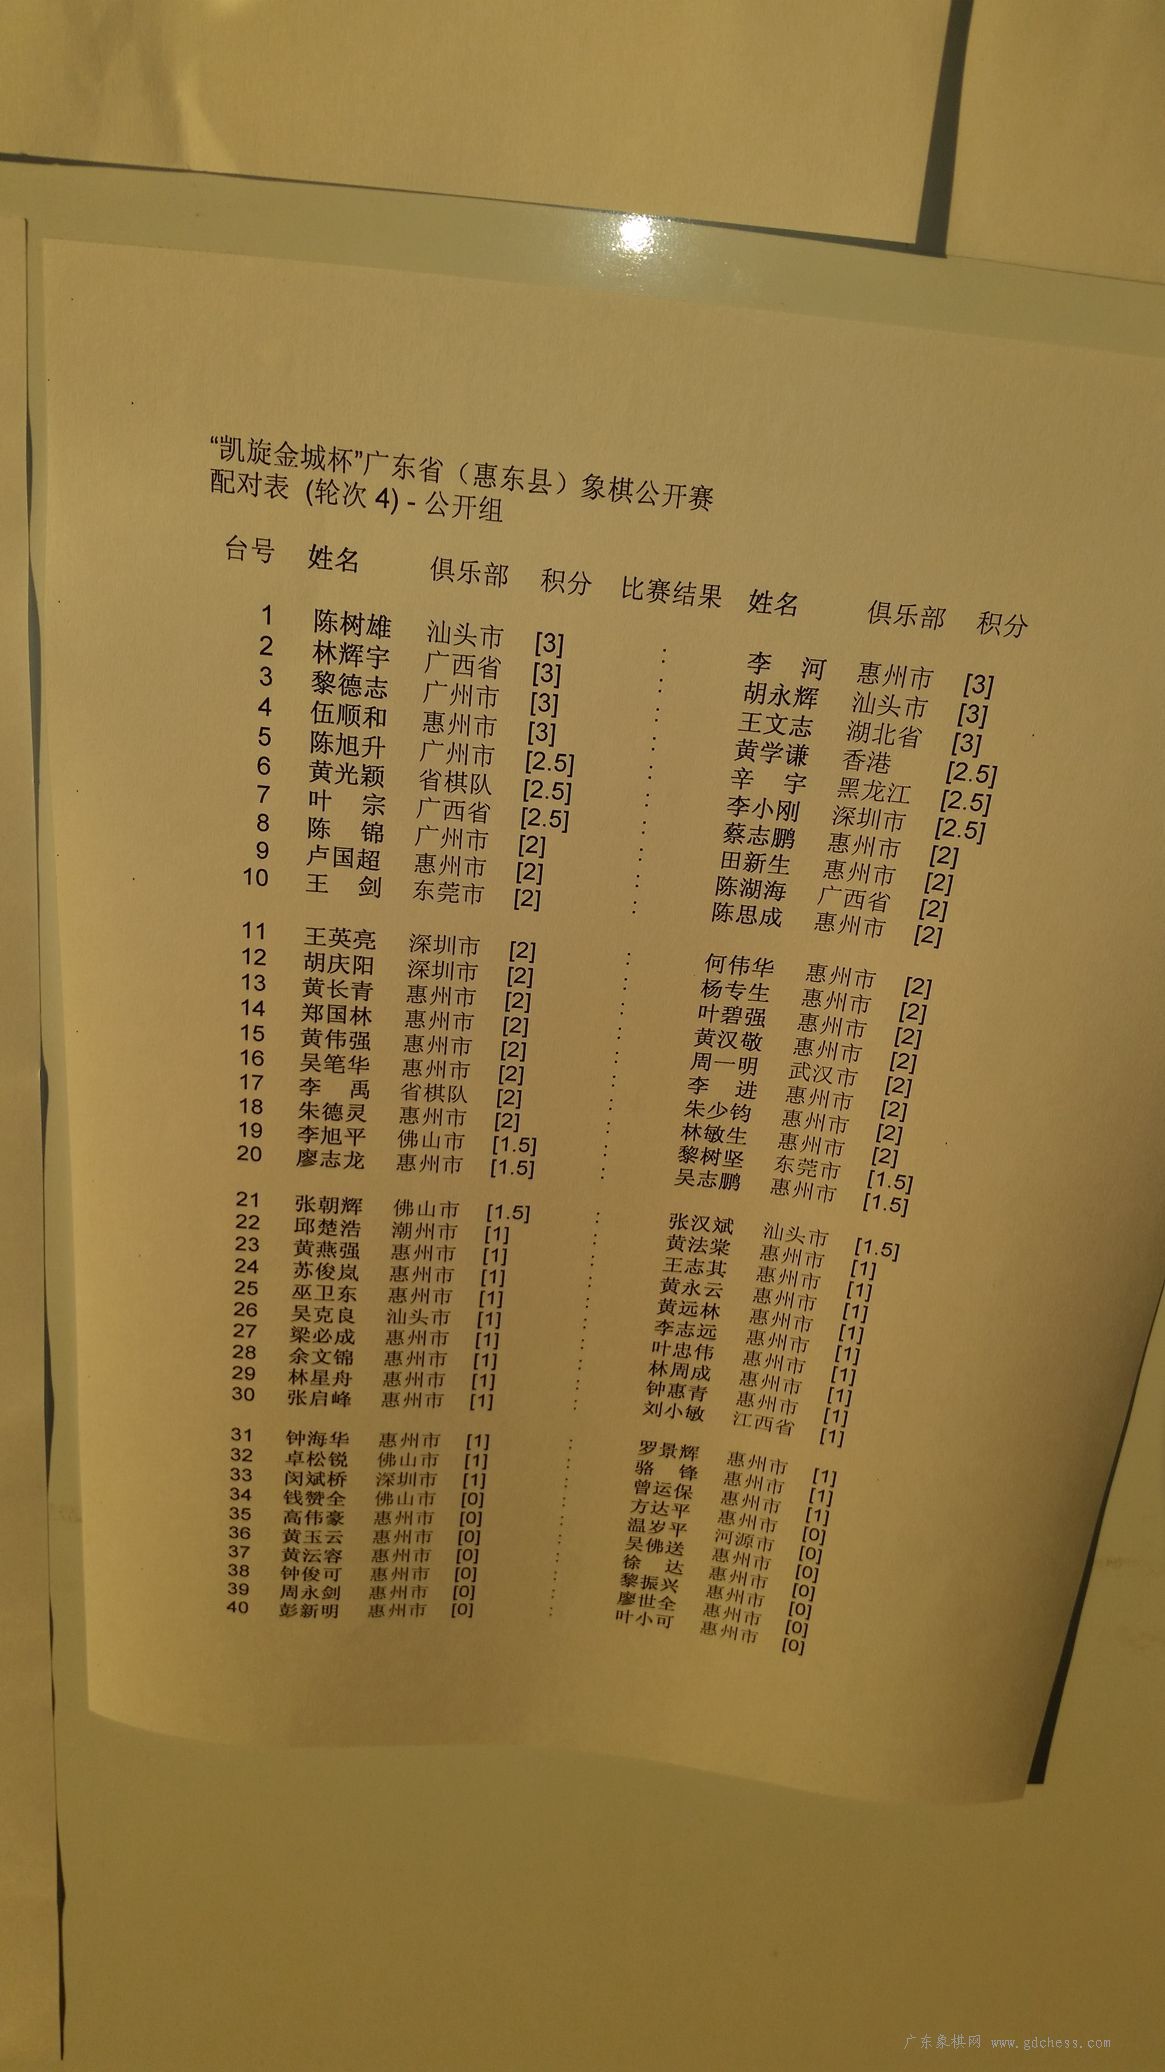 “凯旋金城杯”广东省（惠东县）象棋公开赛
配对表 (轮次 4) - 公开组
台号 姓名 俱乐部 积分 比赛结果 姓名 俱乐部 积分
1 陈树雄 汕头市 [3] : 李 河 惠州市 [3]
2 林辉宇 广西省 [3] : 胡永辉 汕头市 [3]
3 黎德志 广州市 [3] : 王文志 湖北省 [3]
4 伍顺和 惠州市 [3] : 黄学谦 香港 [2.5]
5 陈旭升 广州市 [2.5] : 辛 宇 黑龙江 [2.5]
6 黄光颖 省棋队 [2.5] : 李小刚 深圳市 [2.5]
7 叶 宗 广西省 [2.5] : 蔡志鹏 惠州市 [2]
8 陈 锦 广州市 [2] : 田新生 惠州市 [2]
9 卢国超 惠州市 [2] : 陈湖海 广西省 [2]
10 王 剑 东莞市 [2] : 陈思成 惠州市 [2]
11 王英亮 深圳市 [2] : 何伟华 惠州市 [2]
12 胡庆阳 深圳市 [2] : 杨专生 惠州市 [2]
13 黄长青 惠州市 [2] : 叶碧强 惠州市 [2]
14 郑国林 惠州市 [2] : 黄汉敬 惠州市 [2]
15 黄伟强 惠州市 [2] : 周一明 武汉市 [2]
16 吴笔华 惠州市 [2] : 李 进 惠州市 [2]
17 李 禹 省棋队 [2] : 朱少钧 惠州市 [2]
18 朱德灵 惠州市 [2] : 林敏生 惠州市 [2]
19 李旭平 佛山市 [1.5] : 黎树坚 东莞市 [1.5]
20 廖志龙 惠州市 [1.5] : 吴志鹏 惠州市 [1.5]
21 张朝辉 佛山市 [1.5] : 张汉斌 汕头市 [1.5]
22 邱楚浩 潮州市 [1] : 黄法棠 惠州市 [1]
23 黄燕强 惠州市 [1] : 王志其 惠州市 [1]
24 苏俊岚 惠州市 [1] : 黄永云 惠州市 [1]
25 巫卫东 惠州市 [1] : 黄远林 惠州市 [1]
26 吴克良 汕头市 [1] : 李志远 惠州市 [1]
27 梁必成 惠州市 [1] : 叶忠伟 惠州市 [1]
28 余文锦 惠州市 [1] : 林周成 惠州市 [1]
29 林星舟 惠州市 [1] : 钟惠青 惠州市 [1]
30 张启峰 惠州市 [1] : 刘小敏 江西省 [1]
31 钟海华 惠州市 [1] : 罗景辉 惠州市 [1]
32 卓松锐 佛山市 [1] : 骆 锋 惠州市 [1]
33 闵斌桥 深圳市 [1] : 曾运保 惠州市 [1]
34 钱赞全 佛山市 [0] : 方达平 惠州市 [0]
35 高伟豪 惠州市 [0] : 温岁平 河源市 [0]
36 黄玉云 惠州市 [0] : 吴佛送 惠州市 [0]
37 黄沄容 惠州市 [0] : 徐 达 惠州市 [0]
38 钟俊可 惠州市 [0] : 黎振兴 惠州市 [0]
39 周永剑 惠州市 [0] : 廖世全 惠州市 [0]
40 彭新明 惠州市 [0] : 叶小可 惠州市 [0]
广东象棋网 www.gdchess.com